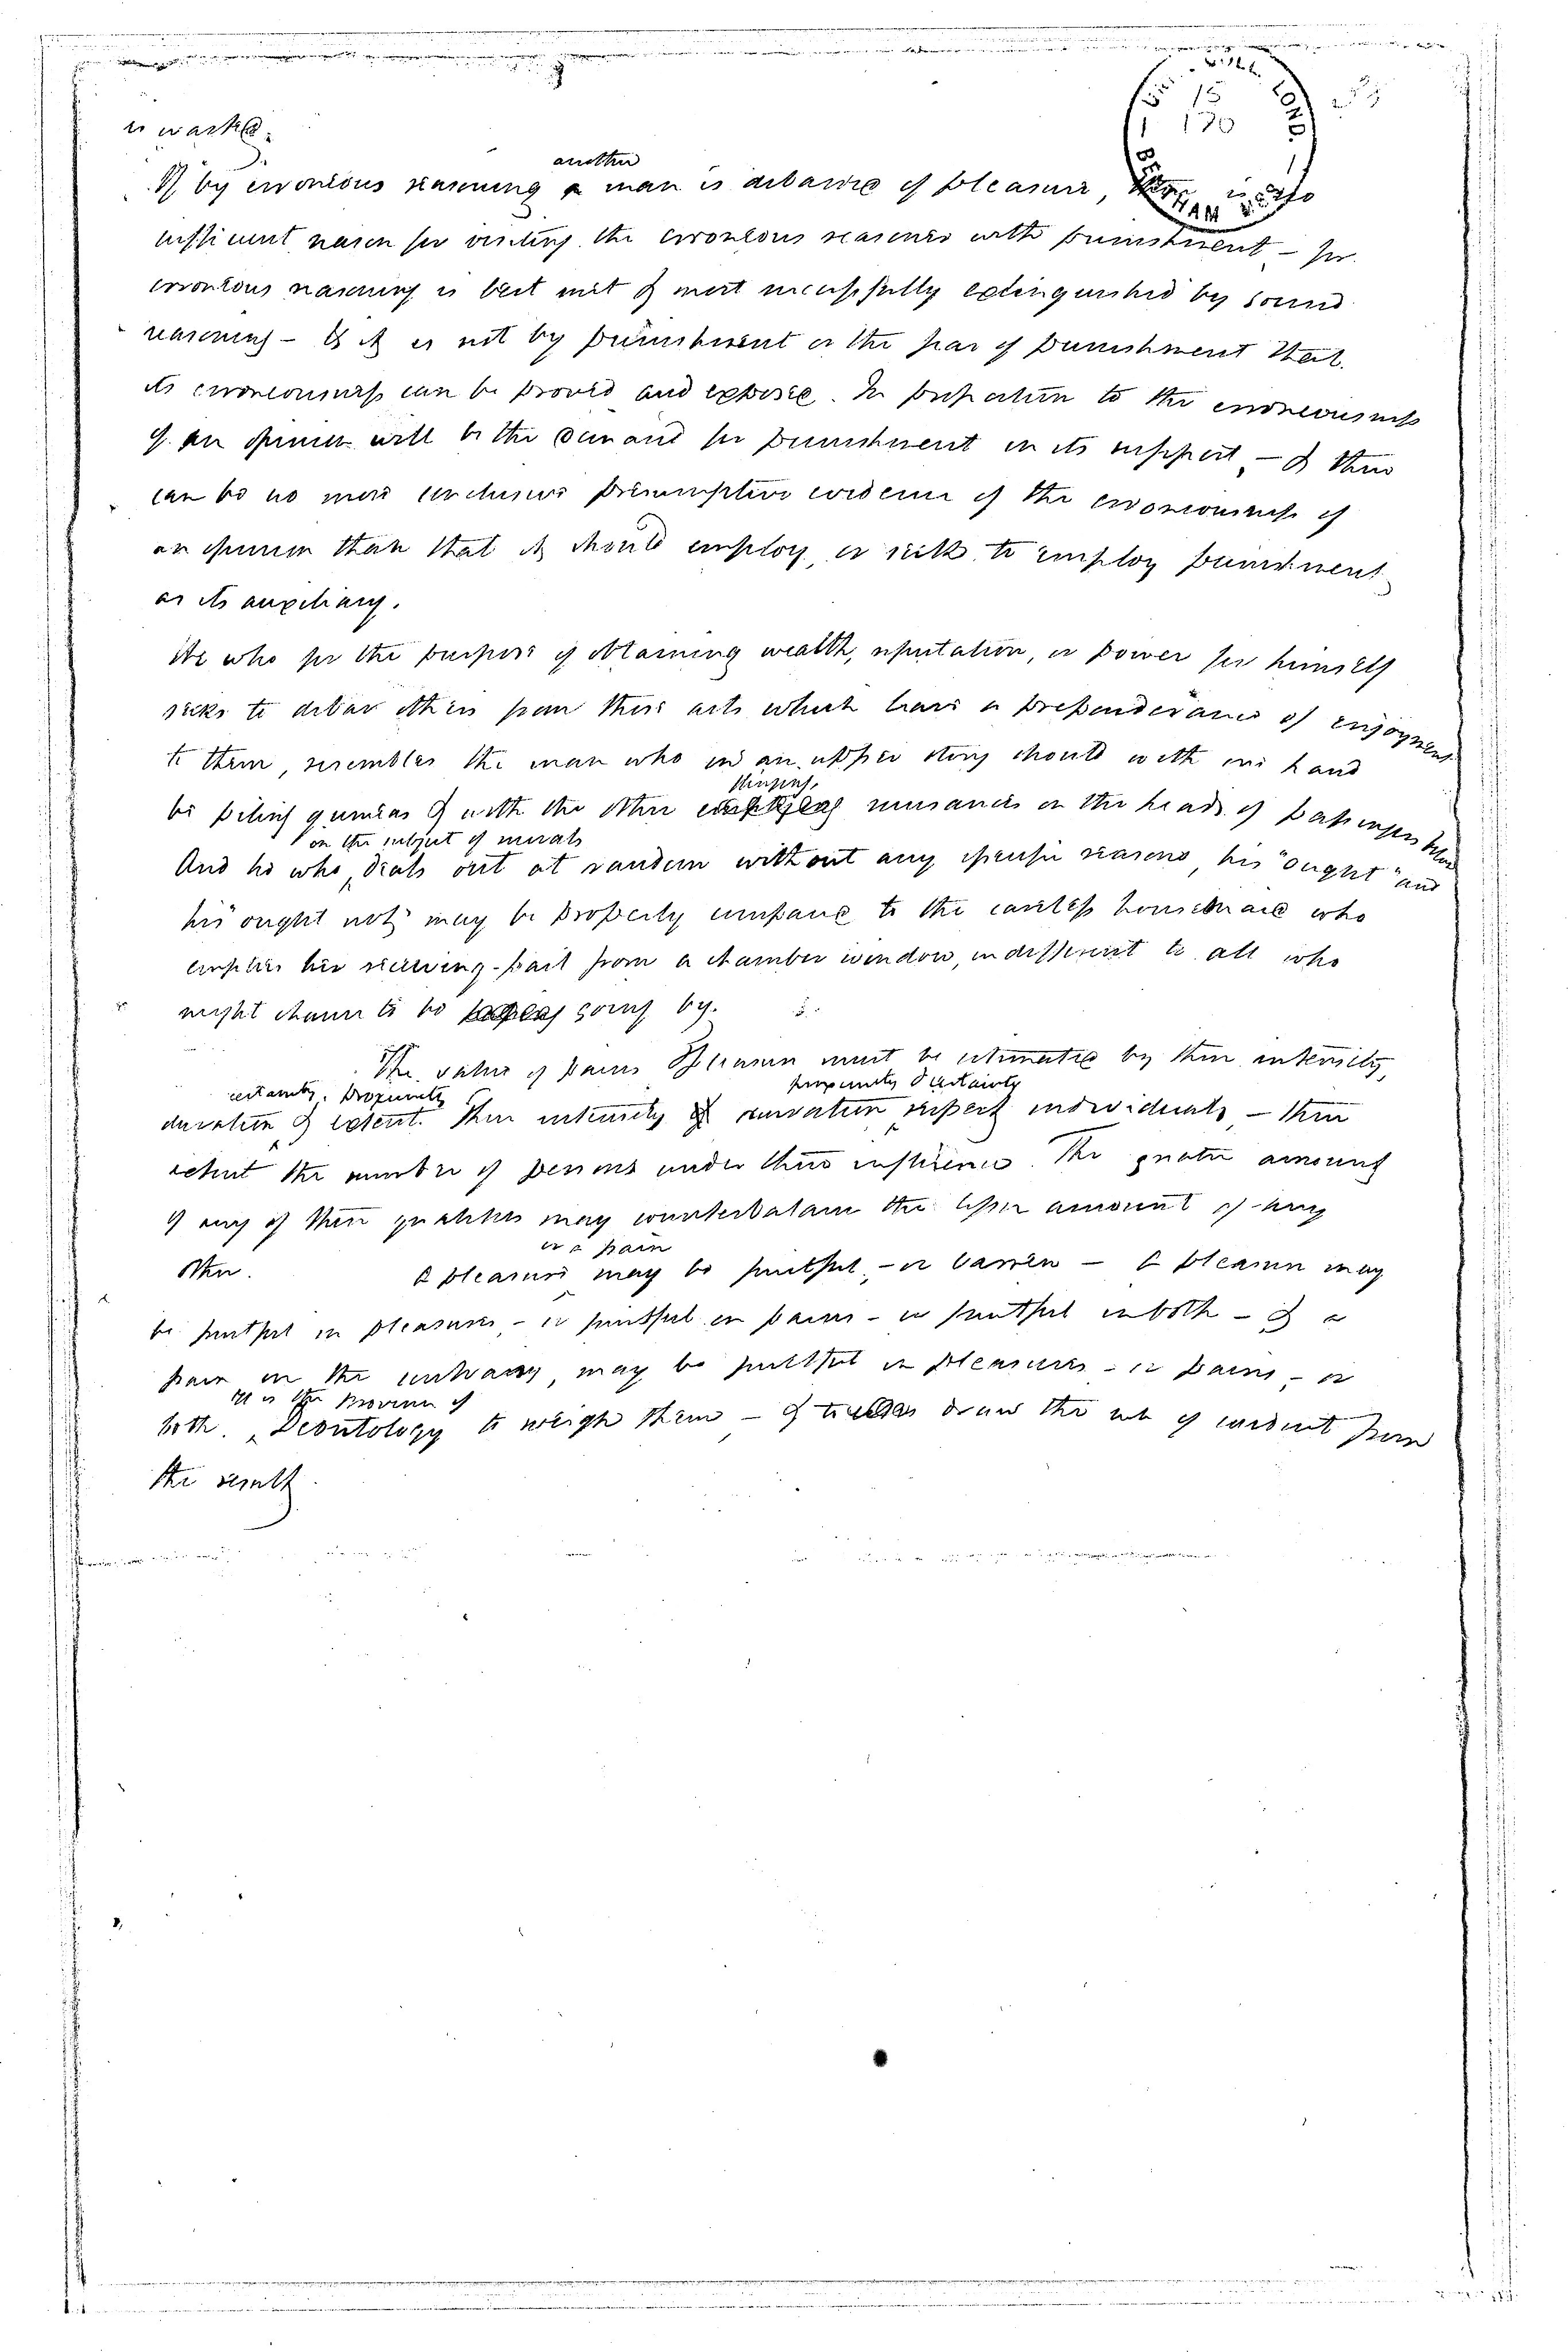 is wasted.
another
If by erroneous reasoning a man is debarred of pleasure, there is also
sufficient reason for visiting the erroneous reasoner with punishment – for
erroneous reasoning is best met & most successfully extinguished by sound
reasoning – & it is not by punishment or the fear of punishment that
its erroneousness can be proved and exposed. In proportion to the erroneousness
of an opinion will be the demand for punishment in its support, – & there
can be no more conclusive presumptive evidence of the erroneousness of
an opinion than that it should employ, or seek to employ punishment
as its auxiliary.
He who for the purpose of obtaining wealth, reputation, or power for himself
seeks to debar others from those acts which have a preponderance of enjoyment
to them, resembles the man who in an upper story should with one hand
flinging,
be piling guineas & with the other emptying nuisances on the heads of passengers below
on the subject of morals
And he who, deals out at random without any specific reasons, his "ought" and
his "ought not" may be properly compared to the careless housemaid who
empties her receiving-pail from a chamber window, indifferent to all who
might chance to be going by.
The value of pains & pleasures must be estimated by their intensity,
certainty, proximity
proximity & certainty
duration & extent. Their intensity & duration, respect individuals, – their
extent the number of persons under their influence. The greater amount
of any of these qualities may counterbalance the lesser amount of any
or a pain
other. A pleasure may be fruitful, – or barren – A pleasure may
be fruitful in pleasures – or fruitful in pains – or fruitful in both – & a
pain on the contrary, may be fruitful in pleasures – or pains, – or
It is the province of
both. Deontology to weigh them – & draw the rule of conduct from
the result.